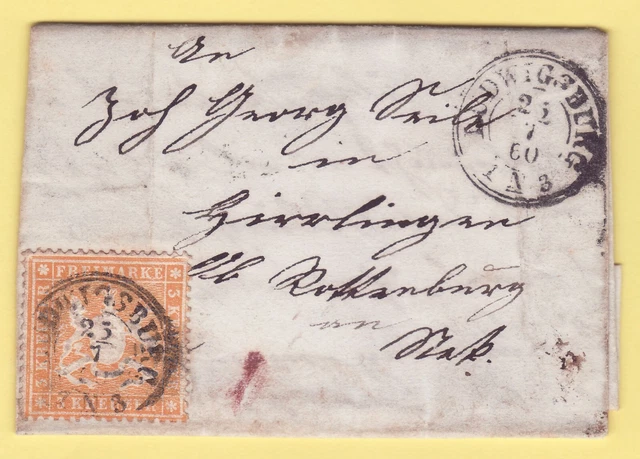 An
Joh Georg Seile
in
Hirrlingen
Rottenburg
an
LUDWIGSBURG
25
7
60
N 3
FREIMARKE
3 KREUZER
LUDWIGSBURG
25
7
N 3